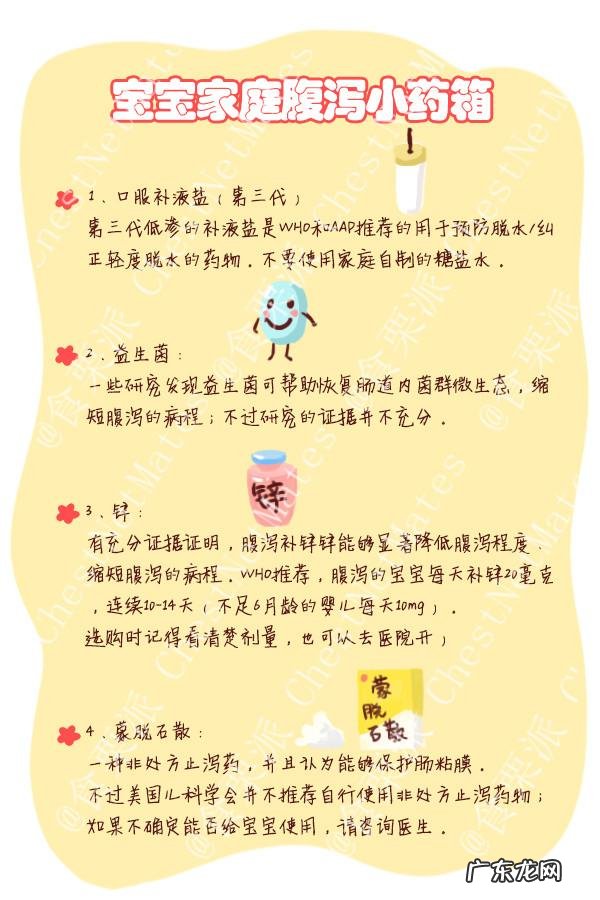 宝宝家庭腹泻小药箱
1、口服补液盐(第三代)
第三代低渗的补液盐是WHO和AAP推荐的用于预防脱水/纠
正轻度脱水的药物．不要使用家庭自制的糖盐水．
2、益生菌：
一些研究发现益生菌可帮助恢复肠道内菌群微生态，缩
短腹泻的病程；不过研究的证据并不充分．
锌
3、锌：
有充分证据证明，腹泻补锌锌能够显著降低腹泻程度、
缩短腹泻的病程．WHO推荐，腹泻的宝宝每天补锌20毫克
，连续10-14天(不足6月龄的婴儿每天10mg)．
选购时记得看清楚剂量，也可以去医院开)
蒙
脱
石散
4、蒙脱石散：
一种非处方止泻药，并且认为能够保护肠粘膜．
不过美国儿科学会并不推荐自行使用非处方止泻药物；
如果不确定能否给宝宝使用，请咨询医生．
@食栗派 ChestNetMates
广东龙网